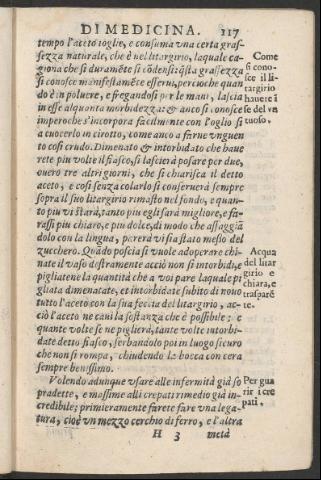 DI MEDICINA. 117
tempo l'aceto toglie, e consuma vna certa gras-
sezza naturale, che è nel litargirio, laquale ca-
giona che si duramẽte si cõdensi: q̃sta grassezza
si conosce manifestamẽte esserui, percioche quan
do è in poluere, e fregandosi per le mani, lascia
in esse alquanta morbidezza: & anco si conosce
imperoche s'incorpora facilmente con l'oglio sì
a cuocerlo in cirotto, come anco a farne vnguen
to così crudo. Dimenato & intorbidato che haue
rete piu volte il fiasco, si lascierà posare per due,
ouero tre altri giorni, che si chiarisca il detto
aceto, e così senza colarlo si conseruerà sempre
sopra il suo litargirio rimasto nel fondo, e quan-
to piu vi starà, tanto piu egli sarà migliore, e fa-
rassi piu chiaro, e piu dolce, di modo che assaggiã
dolo con la lingua, parerà vi sia stato messo del
zucchero. Quãdo poscia si vuole adoperare chi-
nate il vaso destramente acciò non si intorbidi, e
pigliatene la quantità che a voi pare laquale pi
gliata dimenatate, et intorbidate subito di nouo
tutto l'aceto con la sua feccia del litargirio, ac-
ciò l'aceto ne caui la sostanza che è possibile: e
quante volte se ne piglierà, tante volte intorbi-
date detto fiasco, serbandolo poi in luogo sicuro
che non si rompa, chiudendo la bocca con cera
sempre benissimo.
Volendo adunque vsare alle infermità già so
pradette, e massime alli crepati rimedio già in-
credibile; primieramente farete fare vna lega-
tura, cioè vn mezzo cerchio di ferro, e l'altra
H 3 metà
Come
si cono-
sce il li-
targirio
hauere ĩ
se del vn
tuoso.
Acqua
del litar
girio e
chiara, e
trasparẽ
te.
Per gua
rir i cre
pati.